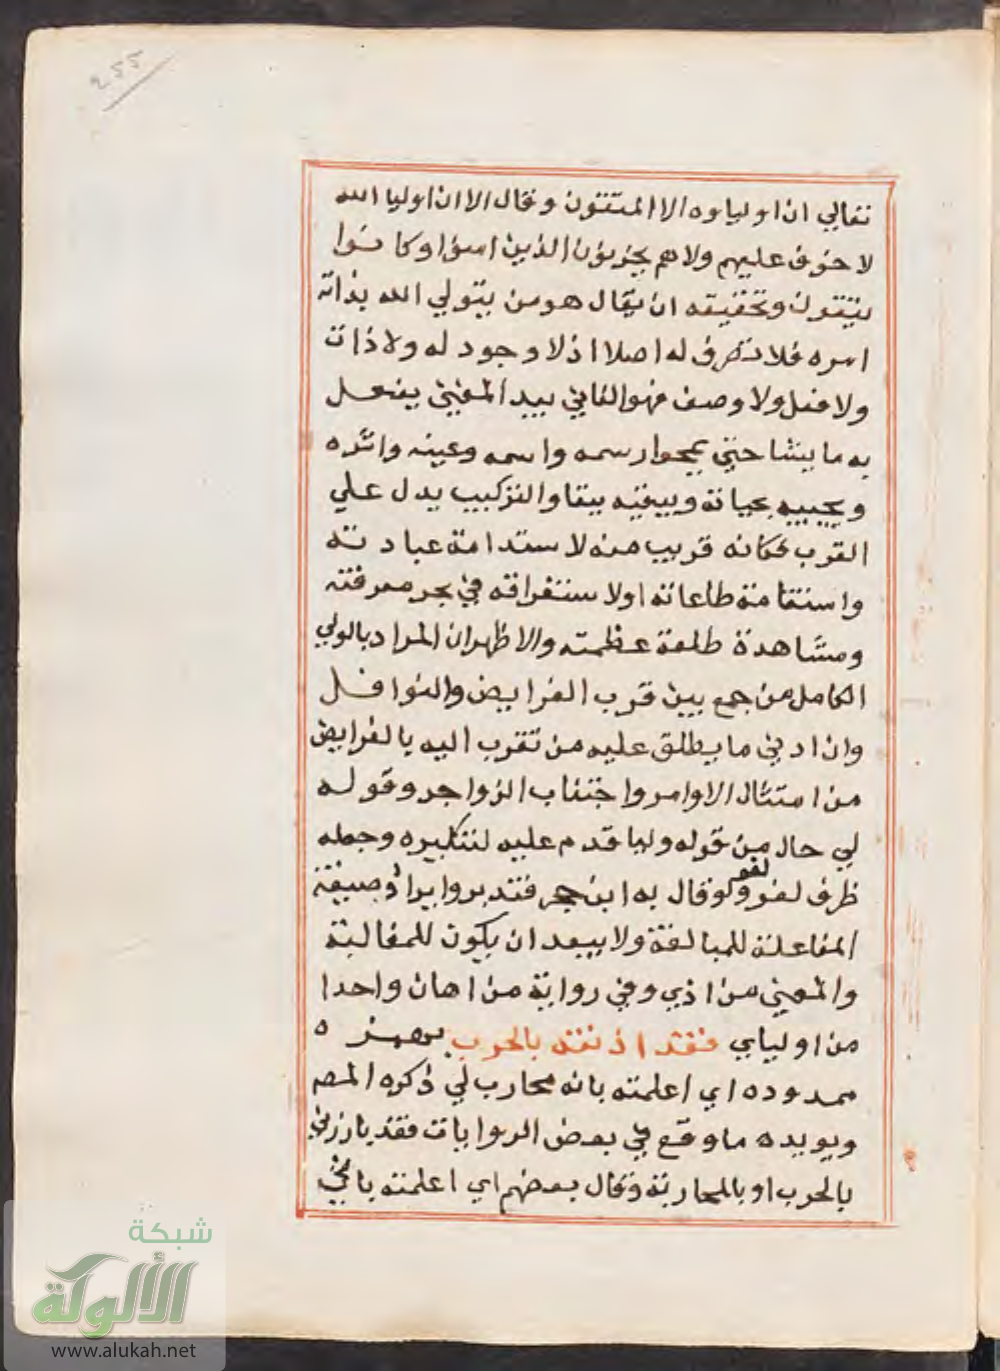 ٢٥٥
تعالي ان اولياوه الا المتقون وقال الا ان اوليا الله
لا خوف عليهم ولا هم يحزنون الذين امنوا وكانوا
يتقون وتحقيقه ان يقال هو من يتولي الله بذاته
امره فلا تصرف له اصلا اذ لا وجود له ولا ذات
ولا فعل ولا وصف فهو الفاني بيد المفني يفعل
به ما يشا حتي يمحوا رسمه واسمه وعينه واثره
ويحييه بحياته ويبقيه ببقا والتركيب يدل علي
القرب فكانه قريب منه لاستدامة عبادته
واستقامة طاعاته او لاستغراقه في بحر معرفته
ومشاهدة طلعة عظمته والاظهر ان المراد بالولي
الكامل من جمع بين قرب الفرايض والنوافل
وان ادني ما يطلق عليه من تقرب اليه بالفرايض
من امتثال الاوامر واجتناب الزواجر وقوله
لي حال من قوله وليا قدم عليه لتنكيره وجعله
ظرف لغو لغو وقال به ابن حجر فتدبر وايراد صيغة
المفاعلة للمبالغة ولا يبعد ان يكون للمغالبة
والمعني من اذي وفي رواية من اهان واحدا
من اوليايي فقد اذنته بالحرب بهمزه
ممدوده اي اعلمته بانه محارب لي ذكره المص
ويويده ما وقع في بعض الروايات فقد بارزني
بالحرب او بالمحاربة وقال بعضهم اي اعلمته باني
شبكة
الألوكة
www.alukah.net